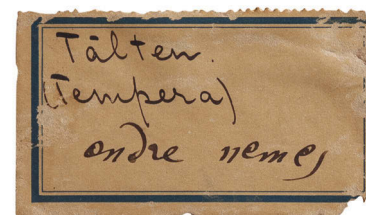 Tälten.
(Tempera)
endre nemes